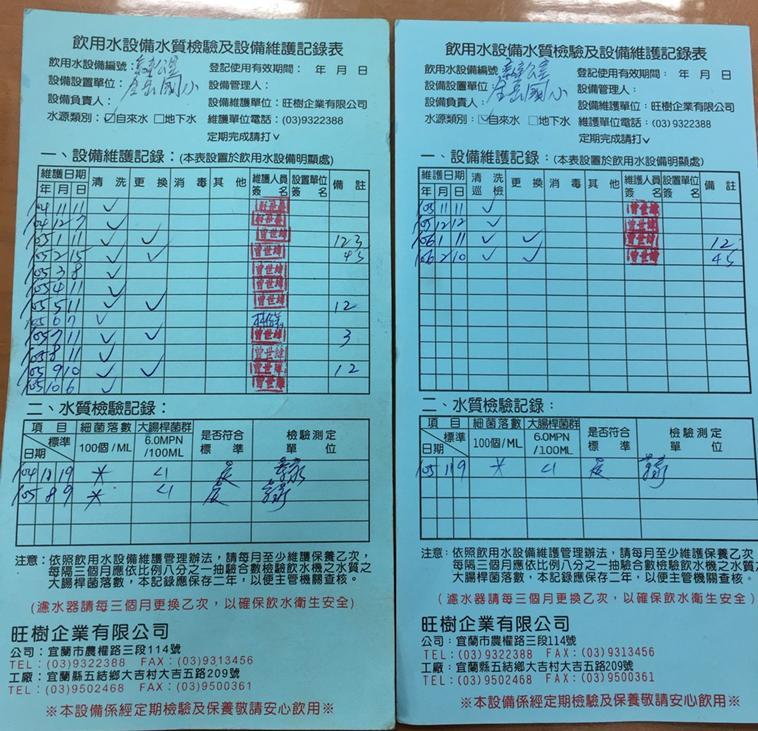 飲用水設備水質檢驗及設備維護記錄表
飲用水設備編號:
登記使用有效期間: 年 月 日
設備設置單位: 國小
設備管理人:
設備負責人:
設備維護單位:旺樹企業有限公司
水源類別:☑自來水 □地下水
維護單位電話:(03)9322388
定期完成請打∨
一、設備維護記錄:(本表設置於飲用水設備明顯處)
維護日期 清洗 更換 消毒 其他 維護人員簽名 設置單位簽名 備註
年 月 日
104 11 11 ✓
104 12 7 ✓
105 1 11 ✓ ✓ 曾世緯 123
105 2 15 ✓ ✓ 曾世緯 45
105 3 8 ✓ 曾世緯
105 4 11 ✓ 曾世緯
105 5 11 ✓ ✓ 曾世緯 12
105 6 7 ✓
105 7 11 ✓ ✓ 曾世緯 3
105 8 11 ✓ 曾世緯
105 9 10 ✓ ✓ 曾世緯 12
105 10 6 ✓ 曾世緯
二、水質檢驗記錄:
項目 標準 日期 細菌落數 100個/ML 大腸桿菌群 6.0MPN/100ML 是否符合標準 檢驗測定單位
104 11 19 * <1
105 8 9 * <1
注意:依照飲用水設備維護管理辦法,請每月至少維護保養乙次,
每隔三個月應依比例八分之一抽驗合數檢驗飲水機之水質之
大腸桿菌落數,本記錄應保存二年,以便主管機關查核。
(濾水器請每三個月更換乙次,以確保飲水衛生安全)
旺樹企業有限公司
公司:宜蘭市農權路三段114號
TEL:(03)9322388 FAX:(03)9313456
工廠:宜蘭縣五結鄉大吉村大吉五路209號
TEL:(03)9502468 FAX:(03)9500361
※本設備係經定期檢驗及保養敬請安心飲用※
飲用水設備水質檢驗及設備維護記錄表
飲用水設備編號:
登記使用有效期間: 年 月 日
設備設置單位: 國小
設備管理人:
設備負責人:
設備維護單位:旺樹企業有限公司
水源類別:☑自來水 □地下水
維護單位電話:(03)9322388
定期完成請打∨
一、設備維護記錄:(本表設置於飲用水設備明顯處)
維護日期 清洗巡檢 更換 消毒 其他 維護人員簽名 設置單位簽名 備註
年 月 日
105 11 11 ✓ 曾世緯
105 12 12 ✓ 曾世緯
106 1 11 ✓ ✓ 曾世緯 12
106 2 10 ✓ ✓ 曾世緯 45
二、水質檢驗記錄:
項目 標準 日期 細菌落數 100個/ML 大腸桿菌群 6.0MPN/100ML 是否符合標準 檢驗測定單位
105 11 9 * <1
注意:依照飲用水設備維護管理辦法,請每月至少維護保養乙次,
每隔三個月應依比例八分之一抽驗合數檢驗飲水機之水質之
大腸桿菌落數,本記錄應保存二年,以便主管機關查核。
(濾水器請每三個月更換乙次,以確保飲水衛生安全)
旺樹企業有限公司
公司:宜蘭市農權路三段114號
TEL:(03)9322388 FAX:(03)9313456
工廠:宜蘭縣五結鄉大吉村大吉五路209號
TEL:(03)9502468 FAX:(03)9500361
※本設備係經定期檢驗及保養敬請安心飲用※